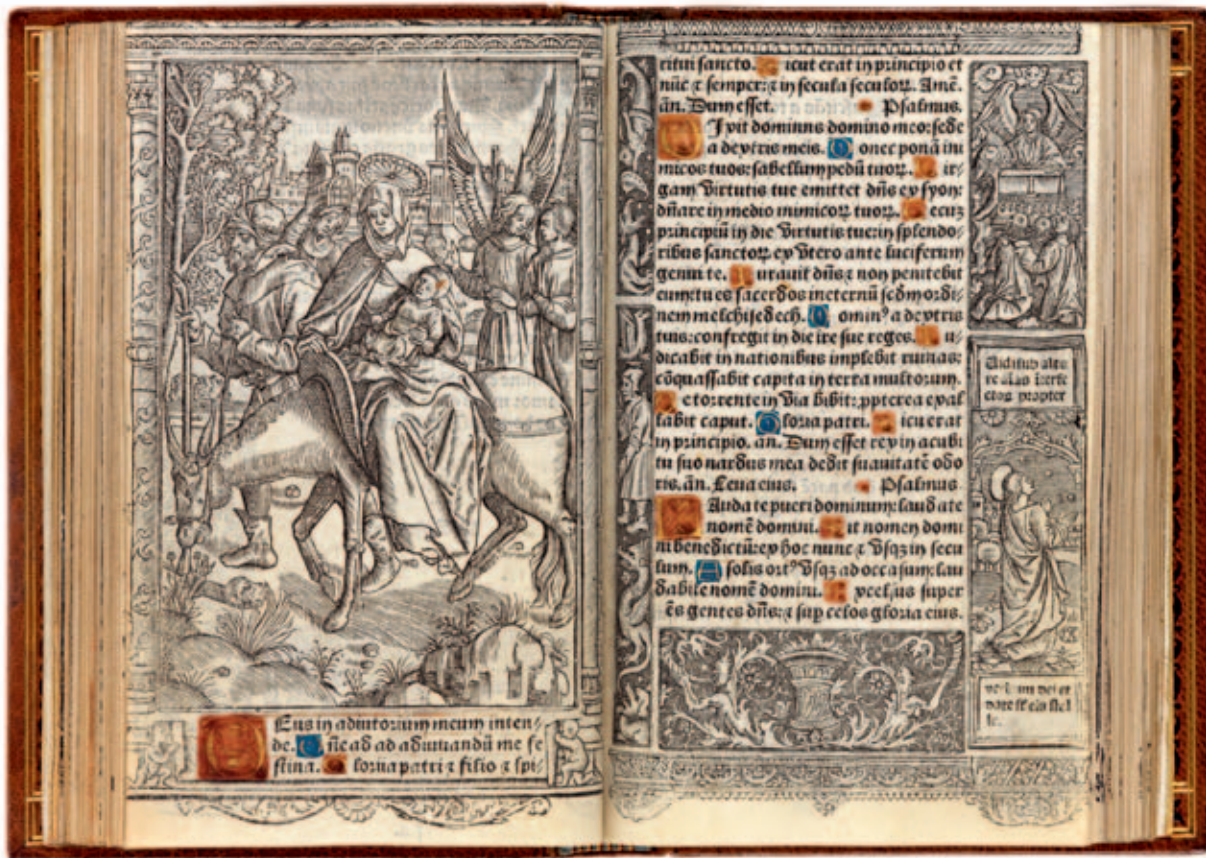 Eus in adiutorium meum inten-
de. D ñe ad adiuuandũ me fe
stina. G loria patri ⁊ filio ⁊ spi-
ritui sancto. S icut erat in principio et
nũc ⁊ semper: ⁊ in secula seculoꝝ. Amẽ.
añ. Dum esset. Psalmus.
D Ixit dominus domino meo: sede
a dextris meis. D onec ponã ini
micos tuos: scabellum pedũ tuoꝝ. V ir-
gam virtutis tue emittet dñs ex syon:
dñare in medio inimicoꝝ tuoꝝ. T ecuꝫ
principiũ in die virtutis tue: in splendo-
ribus sanctoꝝ. ex vtero ante luciferum
genui te. I urauit dñs ⁊ non penitebit
eum: tu es sacerdos in eternũ scd̃m ordi-
nem melchisedech. D omin⁹ a dextris
tuis: confregit in die ire sue reges. I u-
dicabit in nationibus implebit ruinas:
cõquassabit capita in terra multorum.
D e torrente in via bibit: ꝓpterea exal
tabit caput. G loria patri. S icut erat
in principio. an. Dum esset rex in acubi
tu suo nardus mea dedit suauitatẽ odo
ris. añ. Leua eius. Psalmus
L Auda te pueri dominum: laud ate
nomẽ domini. S it nomen domi
ni benedictũ: ex hoc nunc ⁊ vsqꝫ in secu
lum. A solis ort⁹ vsqꝫ ad occasum: lau
dabile nomẽ domini. E xcelsus super
ẽs gentes dñs: ⁊ sup celos gloria eius.
propter